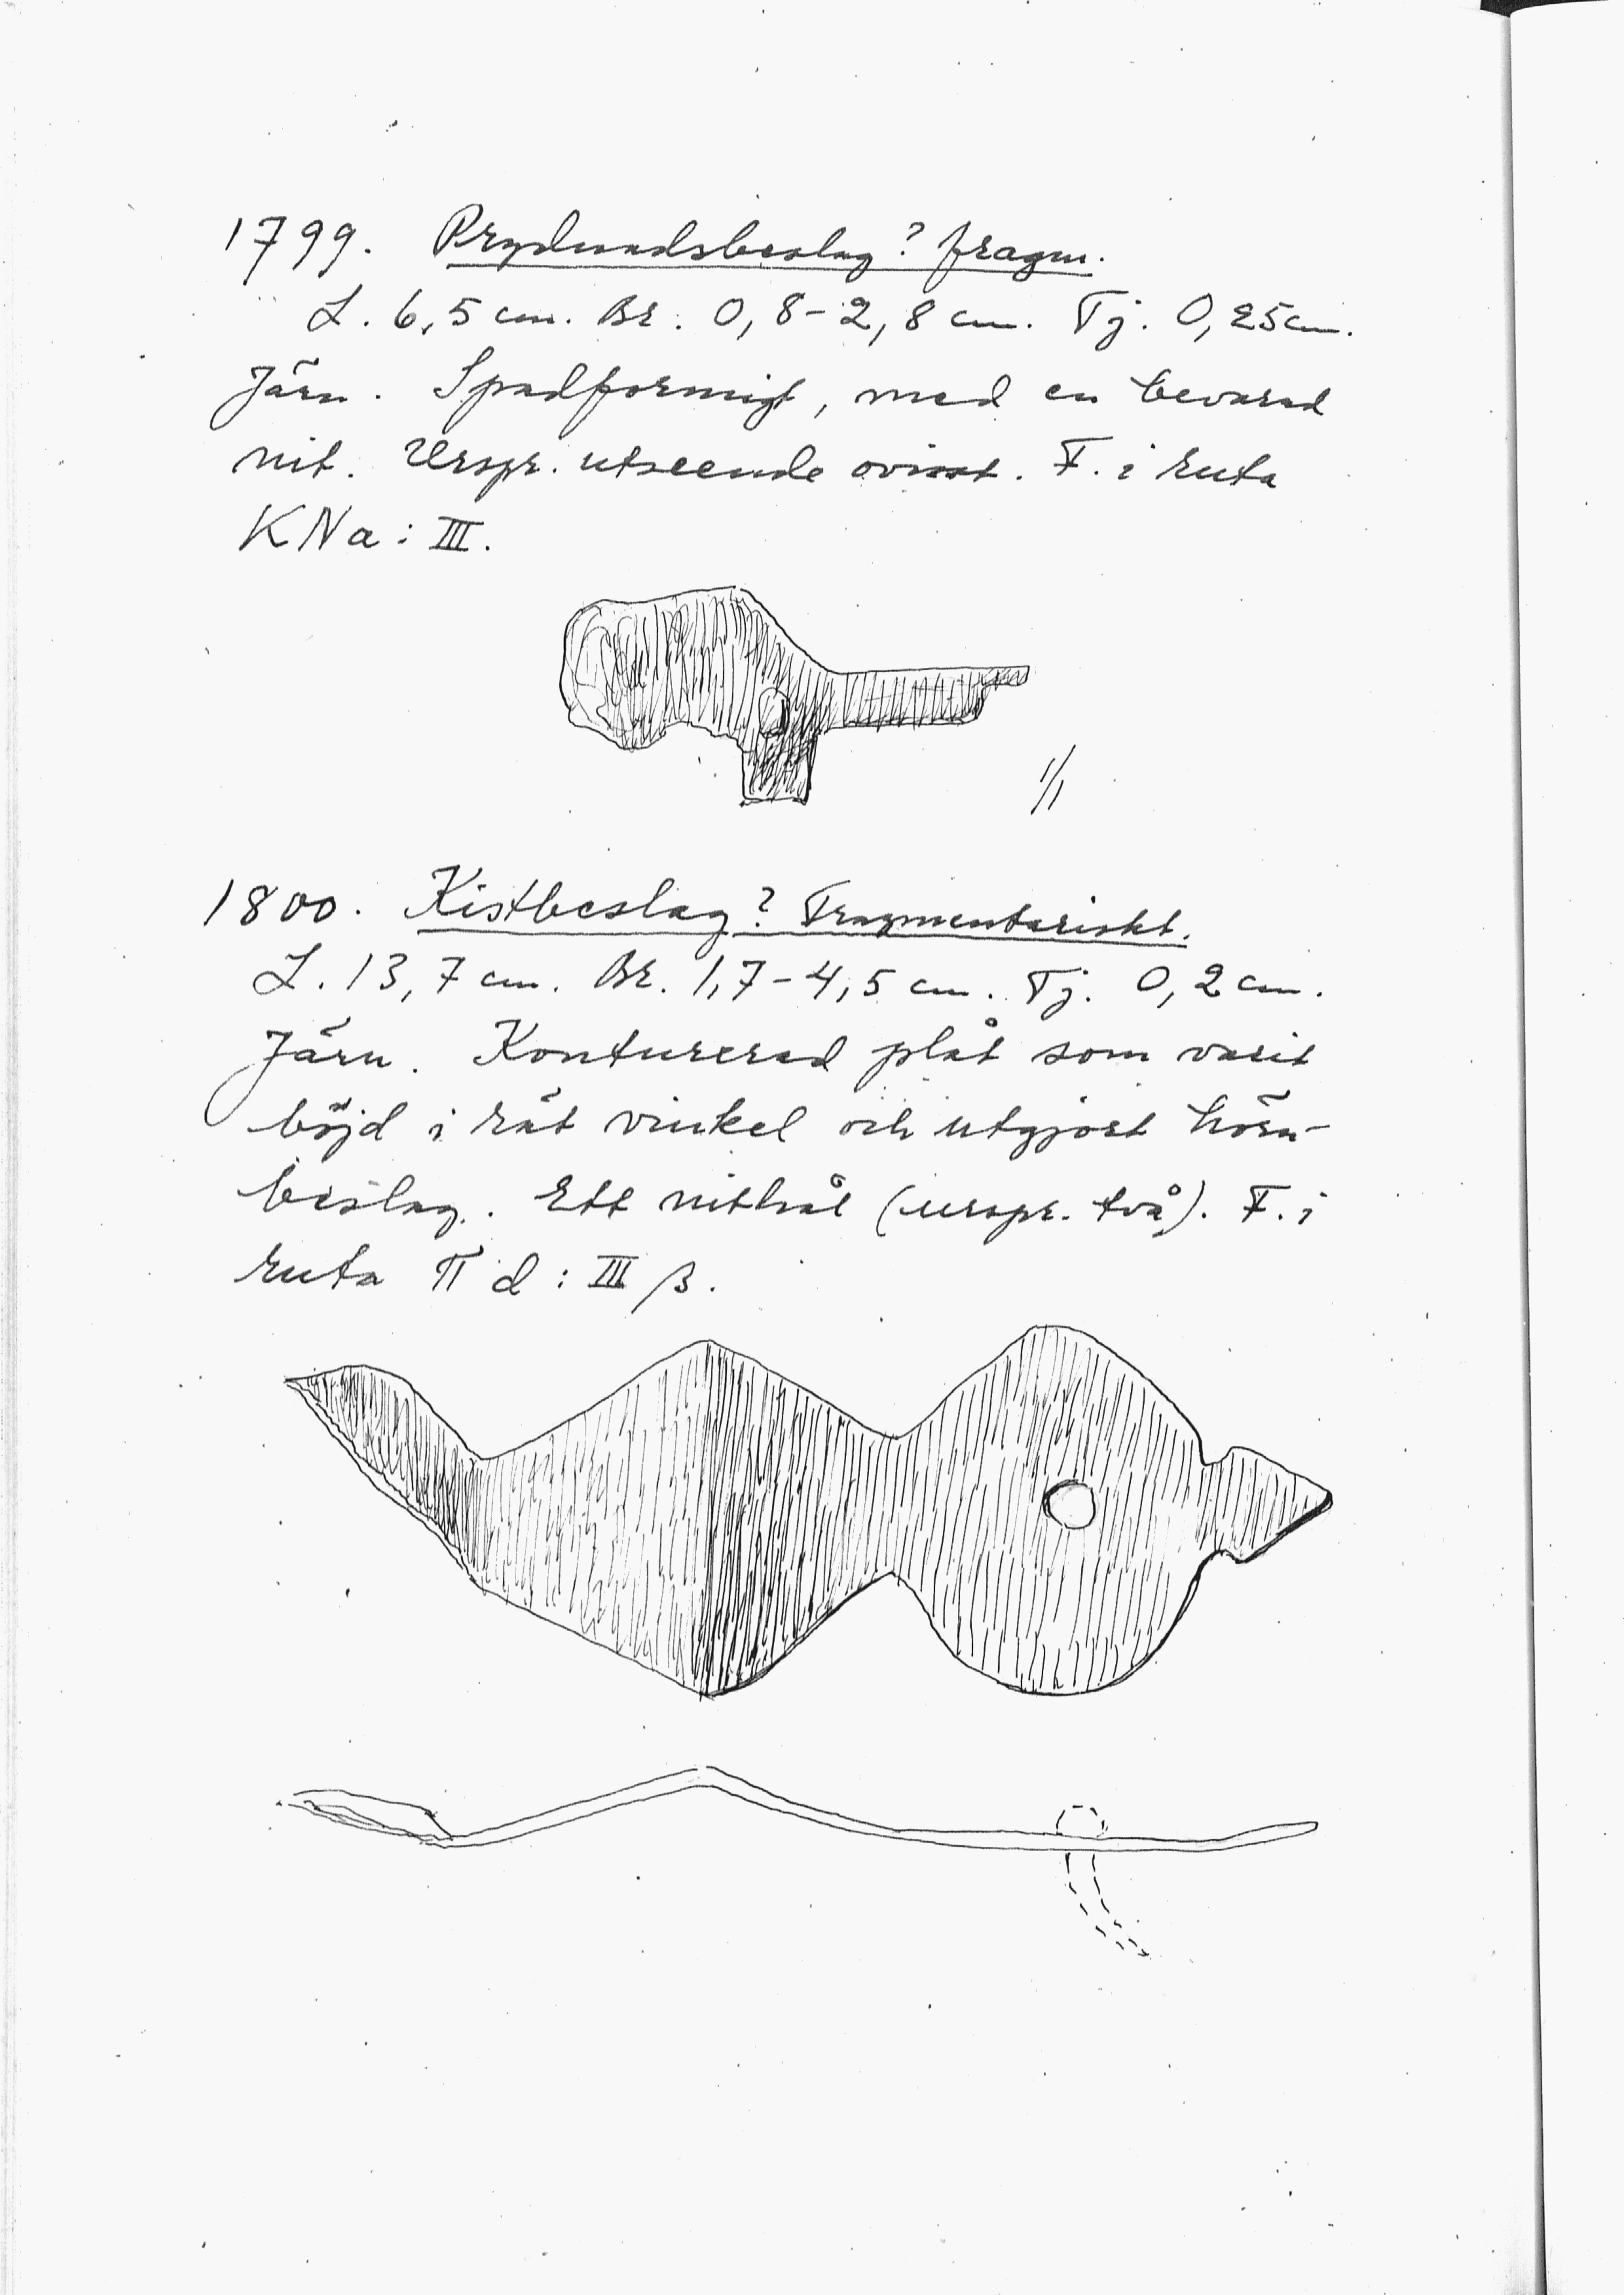 1799. Prydnadsbeslag? fragm.
L. 6,5 cm. Br. 0,8-2,8 cm. Tj. 0,25 cm.
Järn. Spadformigt, med en bevarad
nit. Urspr. utseende ovisst. F. i ruta
KNa: III.
1/1
1800. Kistbeslag? Fragmentariskt.
L. 13,7 cm. Br. 1,7-4,5 cm. Tj. 0,2 cm.
Järn. Konturerad plåt som varit
böjd i rät vinkel och utgjort hörn-
beslag. Ett nithål (urspr. två). F. i
ruta Π d: III β.